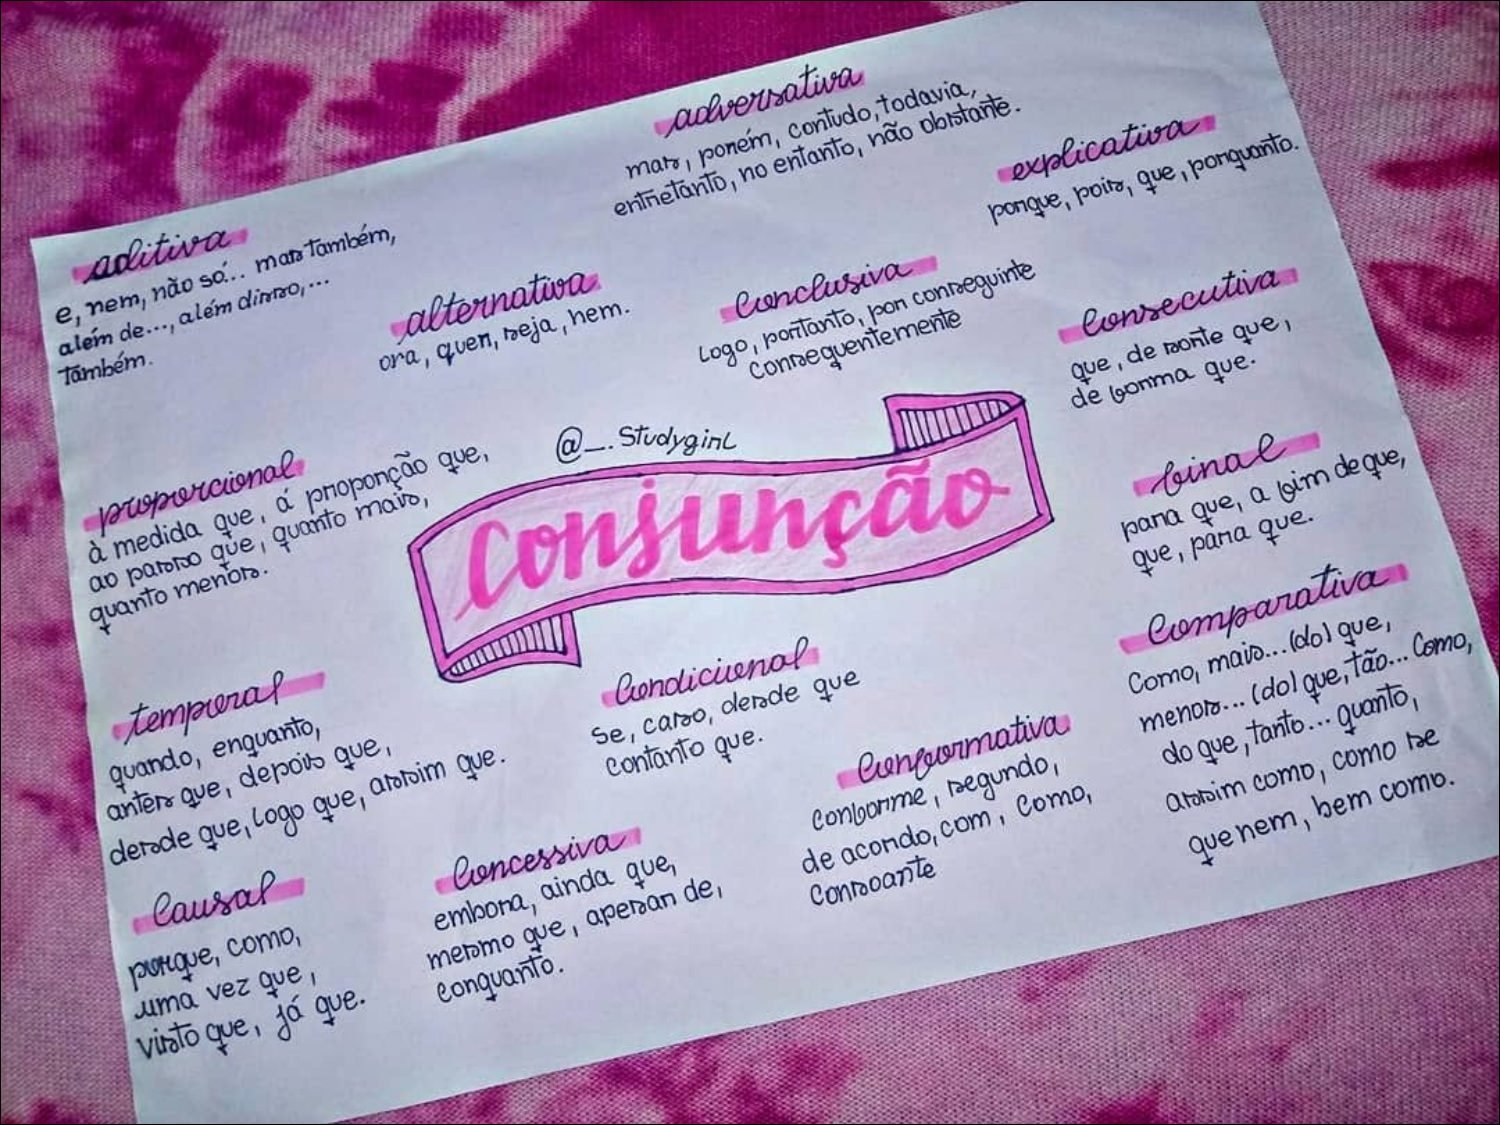 adversativa
mas, porém, contudo, todavia,
entretanto, no entanto, não obstante.
explicativa
porque, pois, que, porquanto.
aditiva
e, nem, não só... mas também,
além de..., além disso,...
também.
alternativa
ora, quer, seja, nem.
Conclusiva
Logo, portanto, por conseguinte
consequentemente
Consecutiva
que, de sorte que,
de forma que.
@_. Studygirl
Conjunção
proporcional
à medida que, á proporção que,
ao passo que, quanto mais,
quanto menos.
final
para que, a fim de que,
que, para que.
Comparativa
Como, mais... (do) que,
menos... (do) que, tão... Como,
do que, tanto... quanto,
assim como, como se
que nem, bem como.
temporal
quando, enquanto,
antes que, depois que,
desde que, logo que, assim que.
Condicional
Se, caso, desde que
contanto que.
Conformativa
conforme, segundo,
de acordo, com, Como,
Consoante
Causal
porque, como,
uma vez que,
visto que, já que.
Concessiva
embora, ainda que,
mesmo que, apesar de,
conquanto.